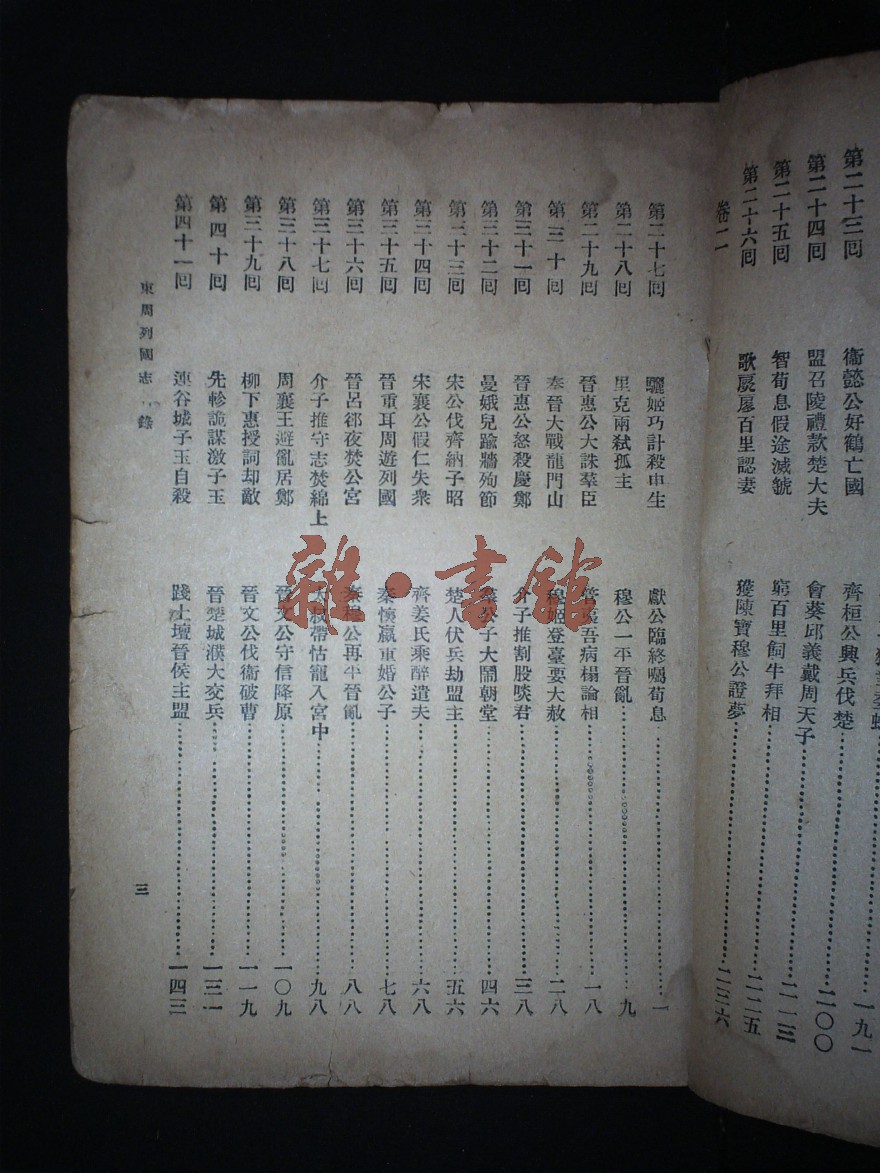 第二十三回 衞懿公好鶴亡國 齊桓公興兵伐楚……一九一
第二十四回 盟召陵禮款楚大夫 會葵邱義戴周天子……二〇〇
第二十五回 智荀息假途滅虢 窮百里飼牛拜相……二一三
第二十六回 歌扊扅百里認妻 獲陳寶穆公證夢……二二五
卷二 二三六
第二十七回 驪姬巧計殺申生 獻公臨終囑荀息……一
第二十八回 里克兩弑孤主 穆公一平晉亂……九
第二十九回 晉惠公大誅羣臣 管夷吾病榻論相……一八
第三十回 秦晉大戰龍門山 穆姬登臺要大赦……二八
第三十一回 晉惠公怒殺慶鄭 介子推割股啖君……三八
第三十二回 晏娥兒踰牆殉節 羣公子大鬧朝堂……四六
第二十三回 宋公伐齊納子昭 楚人伏兵劫盟主……五六
第三十四回 宋襄公假仁失衆 齊姜氏乘醉遣夫……六八
第三十五回 晉重耳周遊列國 秦懷嬴重婚公子……七八
第三十六回 晉呂郤夜焚公宮 秦穆公再平晉亂……八八
第三十七回 介子推守志焚綿上 太叔帶怙寵入宮中……九八
第三十八回 周襄王避亂居鄭 晉文公守信降原……一〇九
第三十九回 柳下惠授詞却敵 晉文公伐衞破曹……一一九
第四十回 先軫詭謀激子玉 晉楚城濮大交兵……一三一
第四十一回 連谷城子玉自殺 踐土壇晉侯主盟……一四三
東周列國志 錄 三
雜·書館